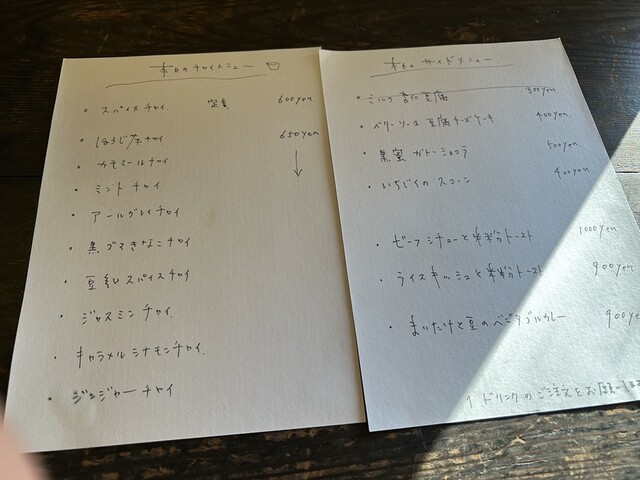 本日のチャイメニュー
・スパイスチャイ 定番 600yen.
・ほうじ茶チャイ 650yen
・カモミールチャイ ↓
・ミントチャイ
・アールグレイチャイ
・黒ゴマきなこチャイ
・豆乳スパイスチャイ
・ジャスミンチャイ.
・キャラメルシナモンチャイ.
・ジンジャーチャイ
サイドメニュー.
・ミルク杏仁豆腐 300yen.
・ベリーソース豆腐チーズケーキ 400yen.
・黒蜜ガトーショコラ 500yen.
・いちじくのスコーン 400yen.
・ビーフシチューと米粉トースト 1000yen
・ライスキッシュと米粉トースト 900yen
・まいたけと豆のベジタブルカレー 900ye
ドリンクのご注文をお願い